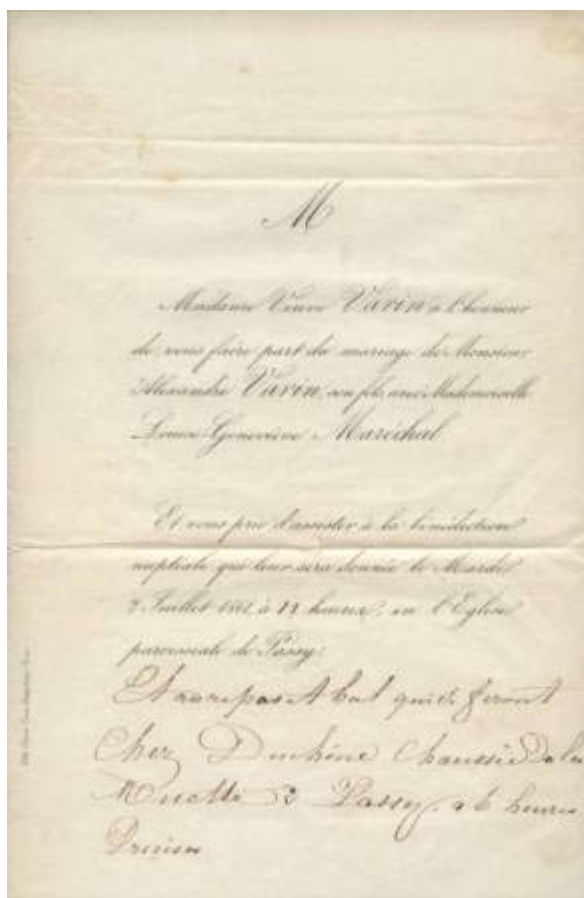 M
Madame Veuve Varin a l'honneur
de vous faire part du mariage de Monsieur
Alexandre Varin, son fils, avec Mademoiselle
Louise Geneviève Maréchal
Et vous prie d'assister à la bénédiction
nuptiale qui leur sera donnée le Mardi
2 Juillet 1861, à 12 heures, en l'Eglise
paroissiale de Passy.
Et au repas et bal qui ce feront
Chez Duchène Chaussée de la
Muette 2 Passy. a 6 heures
Precises